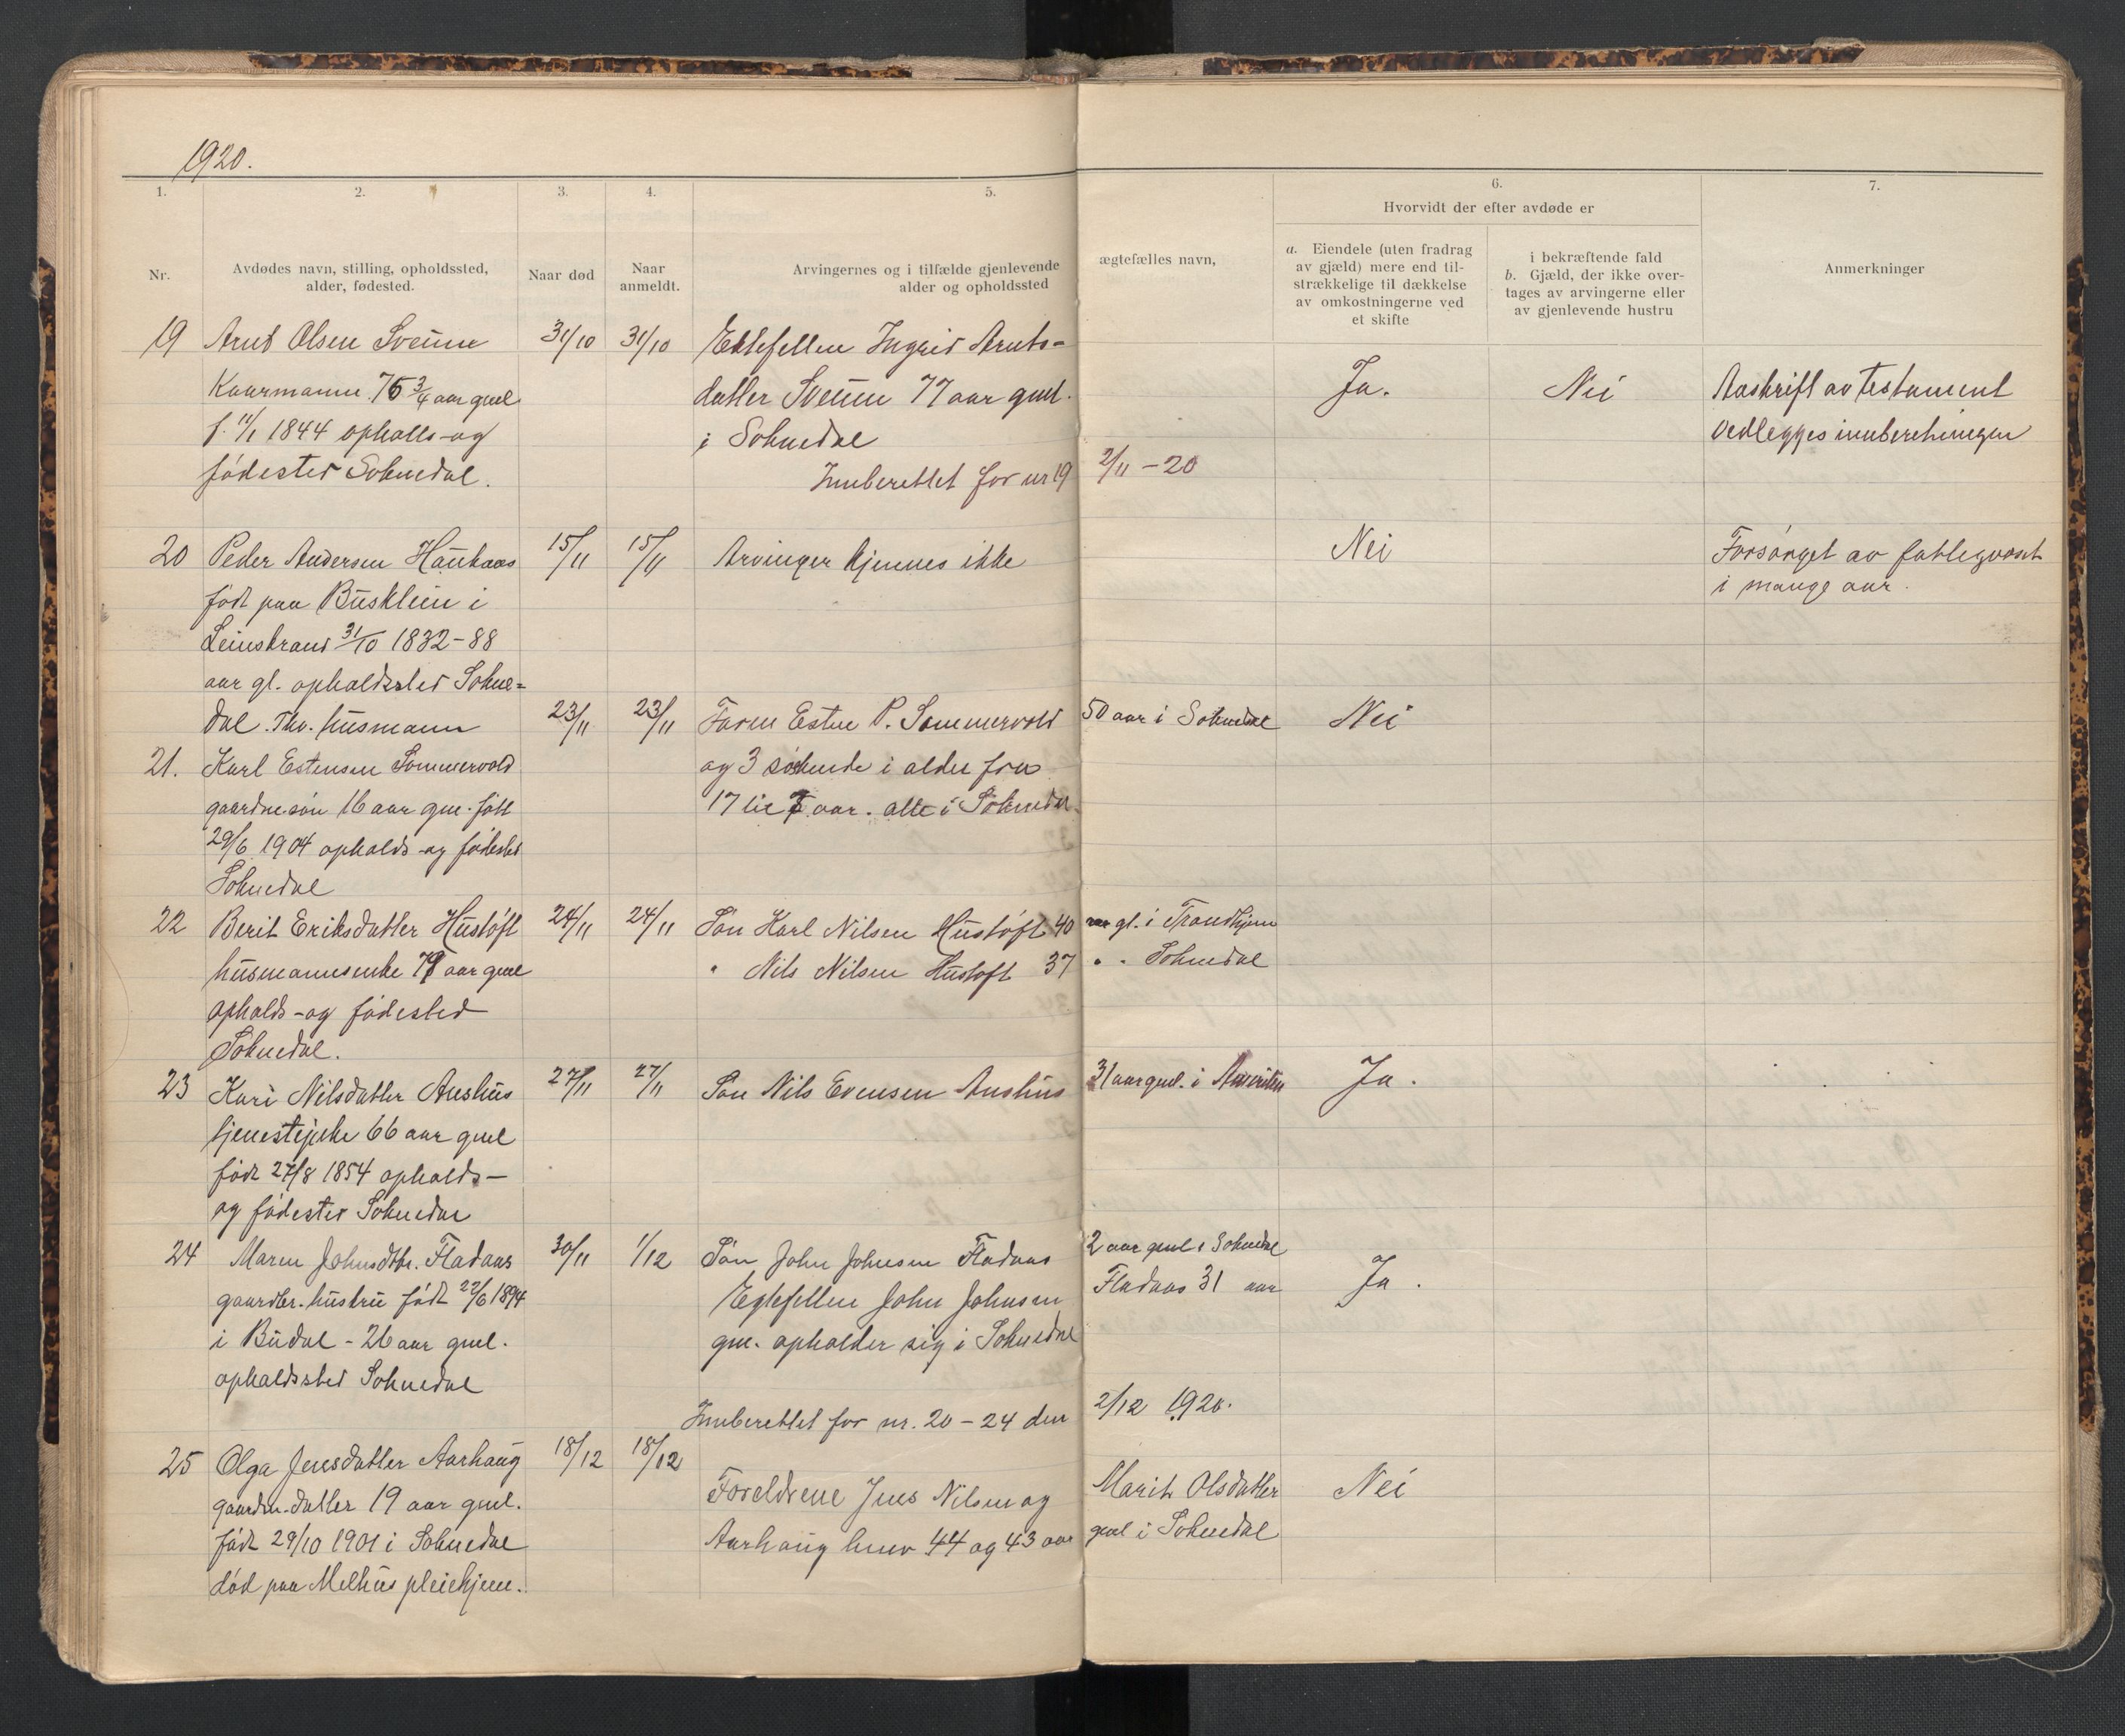 1920.
1. 2. 3. 4. 5. 6. 7.
Hvorvidt der efter avdøde er
Nr.
Avdødes navn, stilling, opholdssted,
alder, fødested.
Naar død
Naar
anmeldt.
Arvingernes og i tilfælde gjenlevende ægtefælles navn,
alder og opholdssted
a. Eiendele (uten fradrag
av gjæld) mere end til-
strækkelige til dækkelse
av omkostningerne ved
et skifte
i bekræftende fald
b. Gjæld, der ikke over-
tages av arvingerne eller
av gjenlevende hustru
Anmerkninger
19 Arnt Olsen Sveum 31/10 31/10 Ektefellen Ingrid Arnts-
Kaarmann 76 3/4 aar gml datter Sveum 77 aar gml. Ja. Nei Avskrift av testament
f. 11/1 1844 opholls- og i Soknedal vedlegges innberetningen
fødested Soknedal. Innberettet for nr 19 2/11 - 20
20 Peder Andersen Haukaas 15/11 15/11 Arvinger kjennes ikke Nei Forsørget av fattigvæset
født paa Busklein i i mange aar.
Leinstrand 31/10 1832 - 88
aar gl. opholdssted Sokne-
dal. Fhv. husmann 23/11 23/11 Faren Esten P. Sommervold 50 aar i Soknedal Nei
21. Karl Estensen Sommervold og 3 søskende i alder fra
gaardm.søn 16 aar gm. født 17 til 7 aar. alle i Soknedal.
29/6 1904 opholds- og fødested
Soknedal
22 Berit Eriksdatter Hustøft 24/11 24/11 Søn Karl Nilsen Hustøft 40 aar gl. i Trondhjem
husmannsenke 79 aar gml " Nils Nilsen Hustøft 37 " " Soknedal
opholds- og fødested
Soknedal.
23 Kari Nilsdatter Aushus 27/11 27/11 Søn Nils Evensen Aushus 31 aar gml. i Amerika Ja.
tjenestejente 66 aar gml
født 27/8 1854 opholds-
og fødested Soknedal
24 Maren Johnsdtr. Fladaas 30/11 1/12 Søn John Johnsen Fladaas 2 aar gml i Soknedal
gaardbr. hustru født 22/6 1894 Egtefellen John Johnsen Fladaas 31 aar Ja.
i Budal - 26 aar gml. gm. opholder sig i Soknedal
opholdssted Soknedal
Innberettet for nr. 20 - 24 den 2/12 1920.
25 Olga Jensdatter Aarhaug 18/12 18/12
gaardm.-datter 19 aar gml. Foreldrene Jens Nilsen og Marit Olsdatter Nei
født 29/10 1901 i Soknedal Aarhaug hver 44 og 43 aar gml i Soknedal
død paa Melhus pleiehjem.